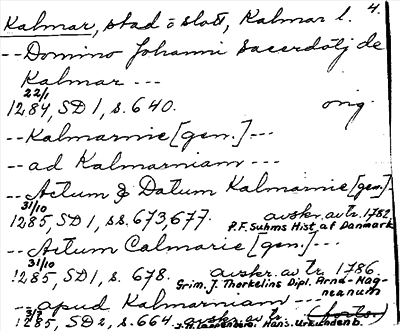 Kalmar, stad o slott, Kalmar l. 4.
-- Domino Johanni sacerdotj de
Kalmar ---
22/1
1284, SD 1, s. 640. orig.
-- Kalmarnie [gen.] ---
-- ad Kalmarniam ---
-- Actum & Datum Kalmarnie [gen.]
31/10
1285, SD 1, ss. 673, 677. avskr. av tr. 1782
P.F. Suhms Hist. af Danmark
-- Actum Calmarie [gen.] ---
31/10
1285, SD 1, s. 678. avskr. av tr. 1786
Grim. J. Thorkelins Dipl. Arna-Mag-
neanum
-- apud Kalmarniam ---
1285, SD 2, s. 664. avskr. av tr.
Hans. Urkundenb.